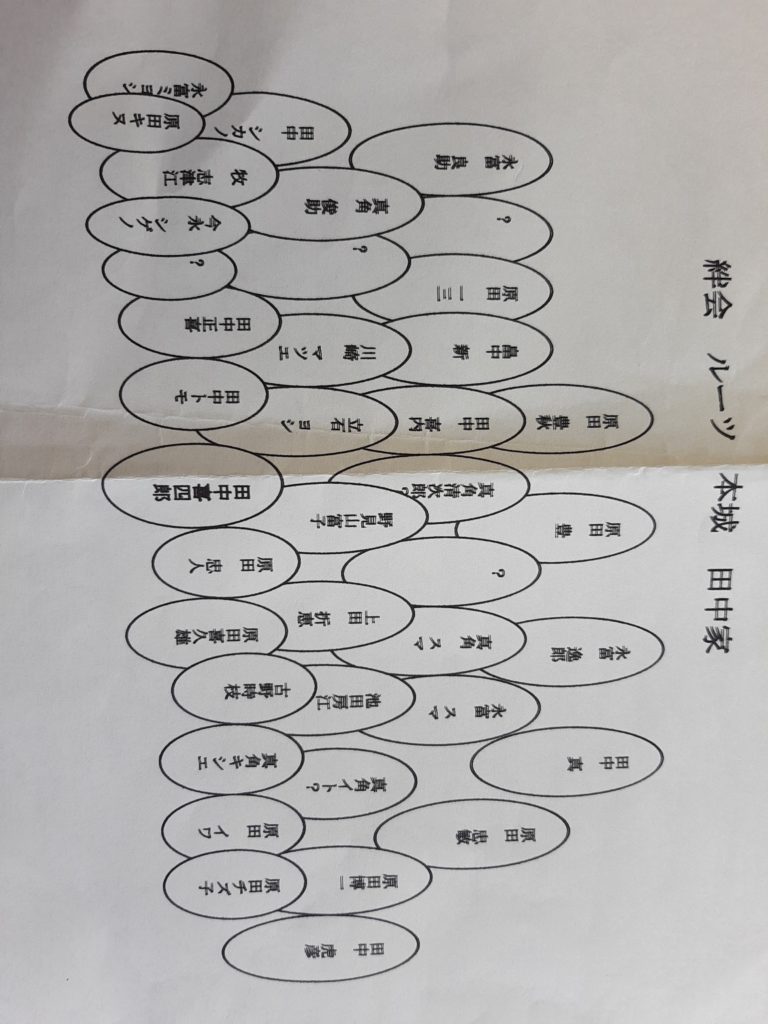 絆会　ルーツ　本城　田中家
原田　豊秋
原田　豊
永富　逸郎
田中　真
永富　良助
?
原田　一三
畠中　新
田中　喜内
真角清次郎?
?
真角　スマ
永富　スマ
原田　忠敏
田中　シカノ
真角　俊助
?
川崎　マツエ
立石　ヨシ
野見山富子
上田　折恵
池田房江
真角イト?
原田博一
田中　虎彦
永富ミヨシ
原田キヌ
牧　志津江
今永　シゲノ
?
田中正喜
田中トモ
田中喜四郎
原田　忠人
原田喜久雄
古野時枝
真角キシエ
原田イワ
原田チズ子